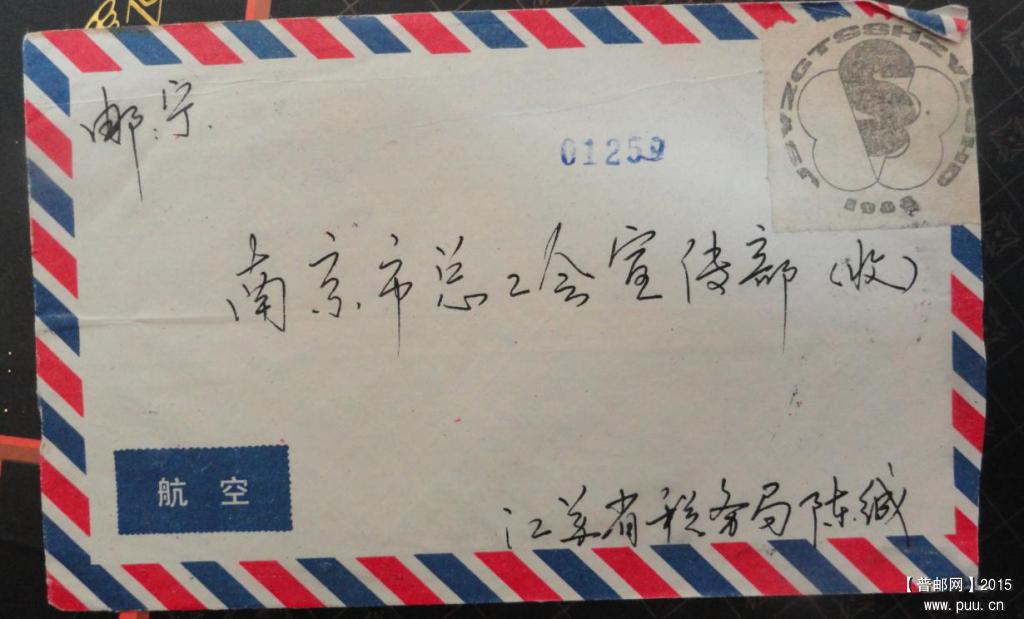 邮.宁.
01259
JSYZGTSSHZY
1985
南京市总工会宣传部(收)
航 空
江苏省税务局陈缄
【普邮网】2015
www.puu.cn